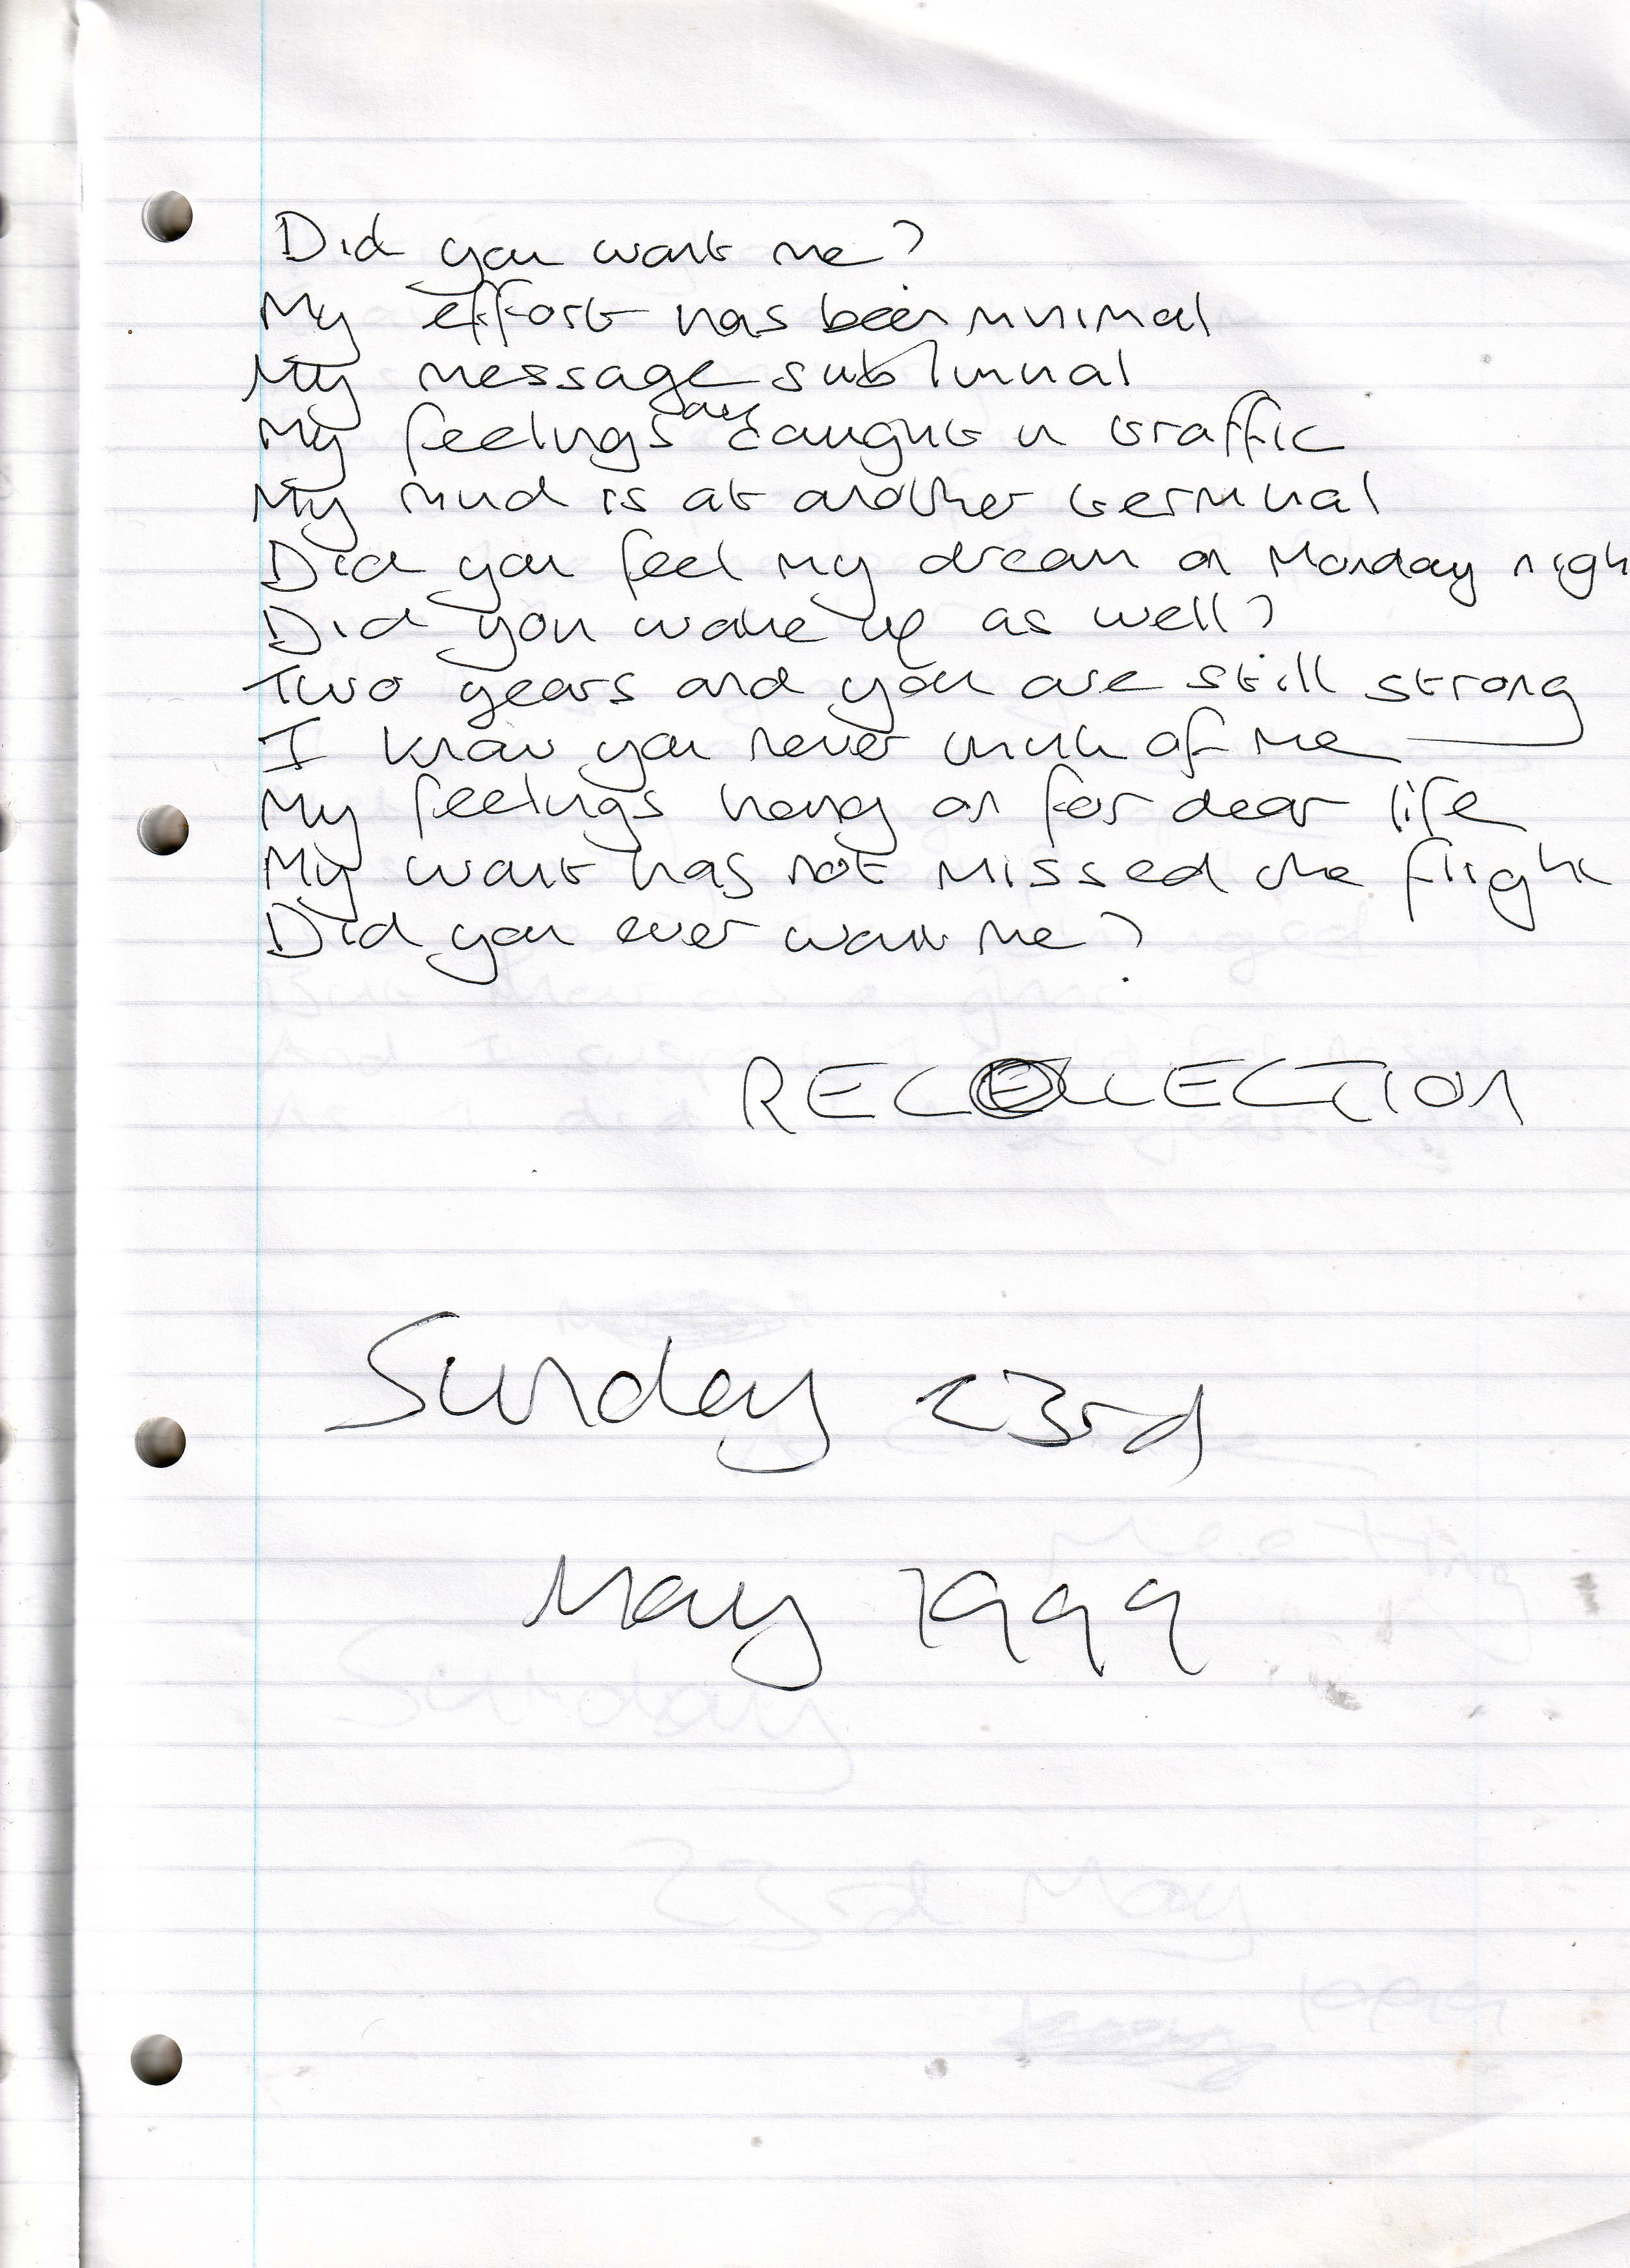 Did you want me?
My effort has been minimal
My message subliminal
My feelings are caught in traffic
My mind is at another terminal
Did you feel my dream on Monday nigh
Did you wake up as well?
Two years and you are still strong
I know you never think of me
My feelings hang on for dear life
My want has not missed the flight
Did you ever want me?
RECOLLECTION
Sunday 23rd
May 1999